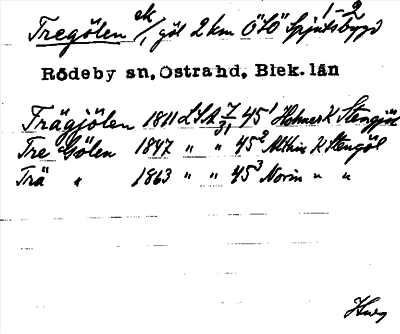 Tregölen ek/, göl 2 km ÖSÖ Spjutsbygd 1-2
Rödeby sn, Östra hd, Blek. län
Trägjölen 1811 LSA 7/31 45¹ Holmer K Stengöl
Tre Gölen 1847 " " 45² Althin K Stengöl
Trä " 1863 " " 45³ Norin " "